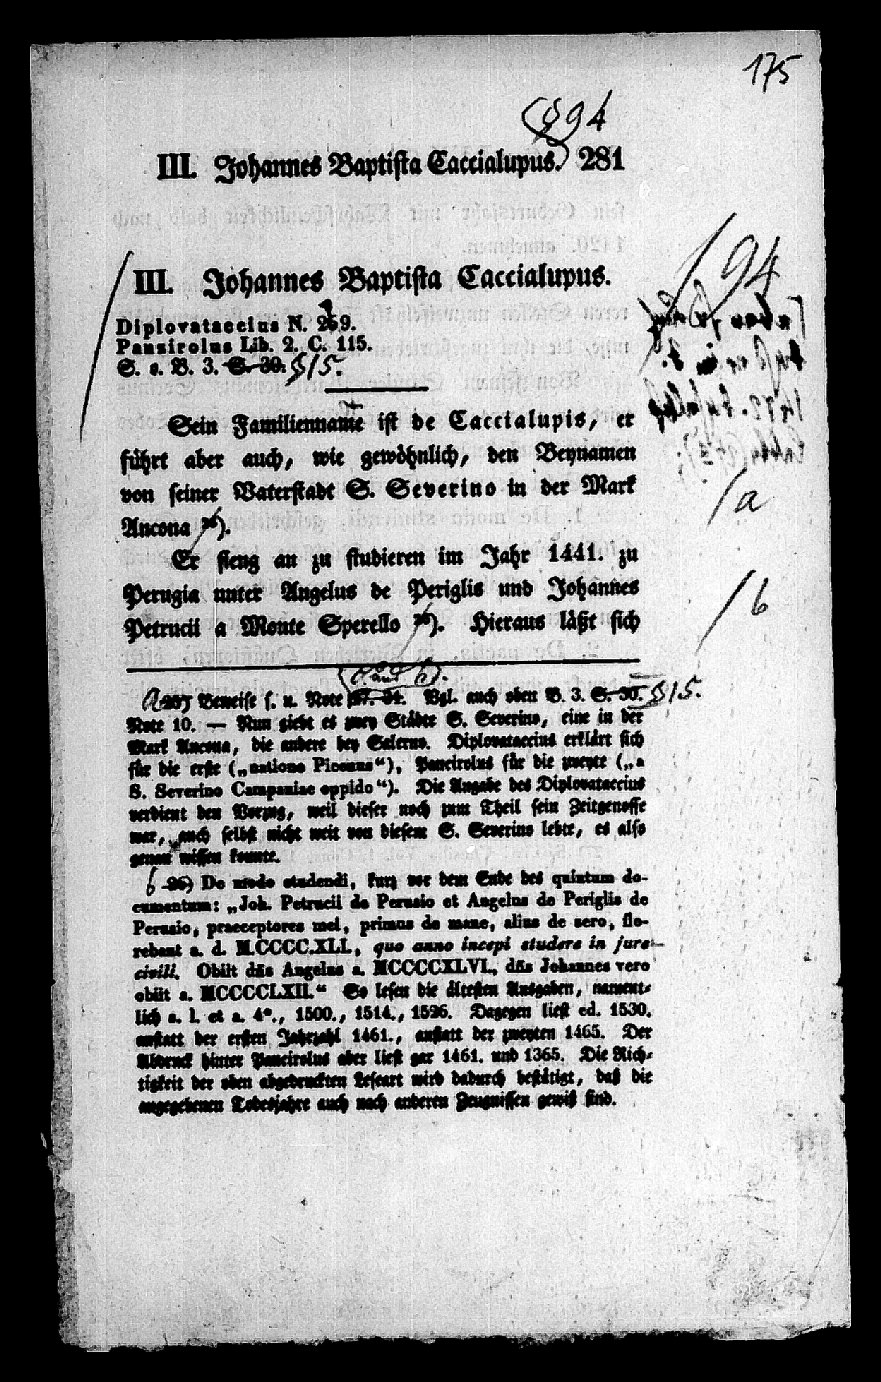 175
§94
III. Johannes Baptista Caccialupus. 281
III. Johannes Baptista Caccialupus.
94
Diplovataccius N. 259.
Panzirolus Lib. 2. C. 115.
S. o. B. 3. S. 30. §15.
Sein Familienname ist de Caccialupis, er
führt aber auch, wie gewöhnlich, den Beynamen
von seiner Vaterstadt S. Severino in der Mark
Ancona ²⁵).
a
Er fieng an zu studieren im Jahr 1441. zu
Perugia unter Angelus de Periglis und Johannes
b
Petrucii a Monte Sperello ²⁶). Hieraus läßt sich
a 25) Beweise s. u. Note 27. 31. Vgl. auch oben B. 3. S. 30. §15.
Note 10. — Nun giebt es zwey Städte S. Severino, eine in der
Mark Ancona, die andere bey Salerno. Diplovataccius erklärt sich
für die erste („natione Picenus“), Pancirolus für die zweyte („a
S. Severino Campaniae oppido“). Die Angabe des Diplovataccius
verdient den Vorzug, weil dieser noch zum Theil sein Zeitgenosse
war, auch selbst nicht weit von diesem S. Severino lebte, es also
genau wissen konnte.
b 26) De modo studendi, kurz vor dem Ende des quintum do-
cumentum: „Joh. Petrucii de Perusio et Angelus de Periglis de
Perusio, praeceptores mei, primus de mane, alius de sero, flo-
rebant a. d. M.CCCC.XLI., quo anno incepi studere in jure
civili. Obiit dñs Angelus a. MCCCCXLVI., dñs Johannes vero
obiit a. MCCCCLXII.“ So lesen die ältesten Ausgaben, nament-
lich s. l. et a. 4°., 1500., 1514., 1526. Dagegen liest ed. 1530.
anstatt der ersten Jahrzahl 1461., anstatt der zweyten 1465. Der
Abdruck hinter Pancirolus aber liest gar 1461. und 1365. Die Rich-
tigkeit der oben abgedruckten Leseart wird dadurch bestätigt, daß die
angegebenen Todesjahre auch nach anderen Zeugnissen gewiß sind.